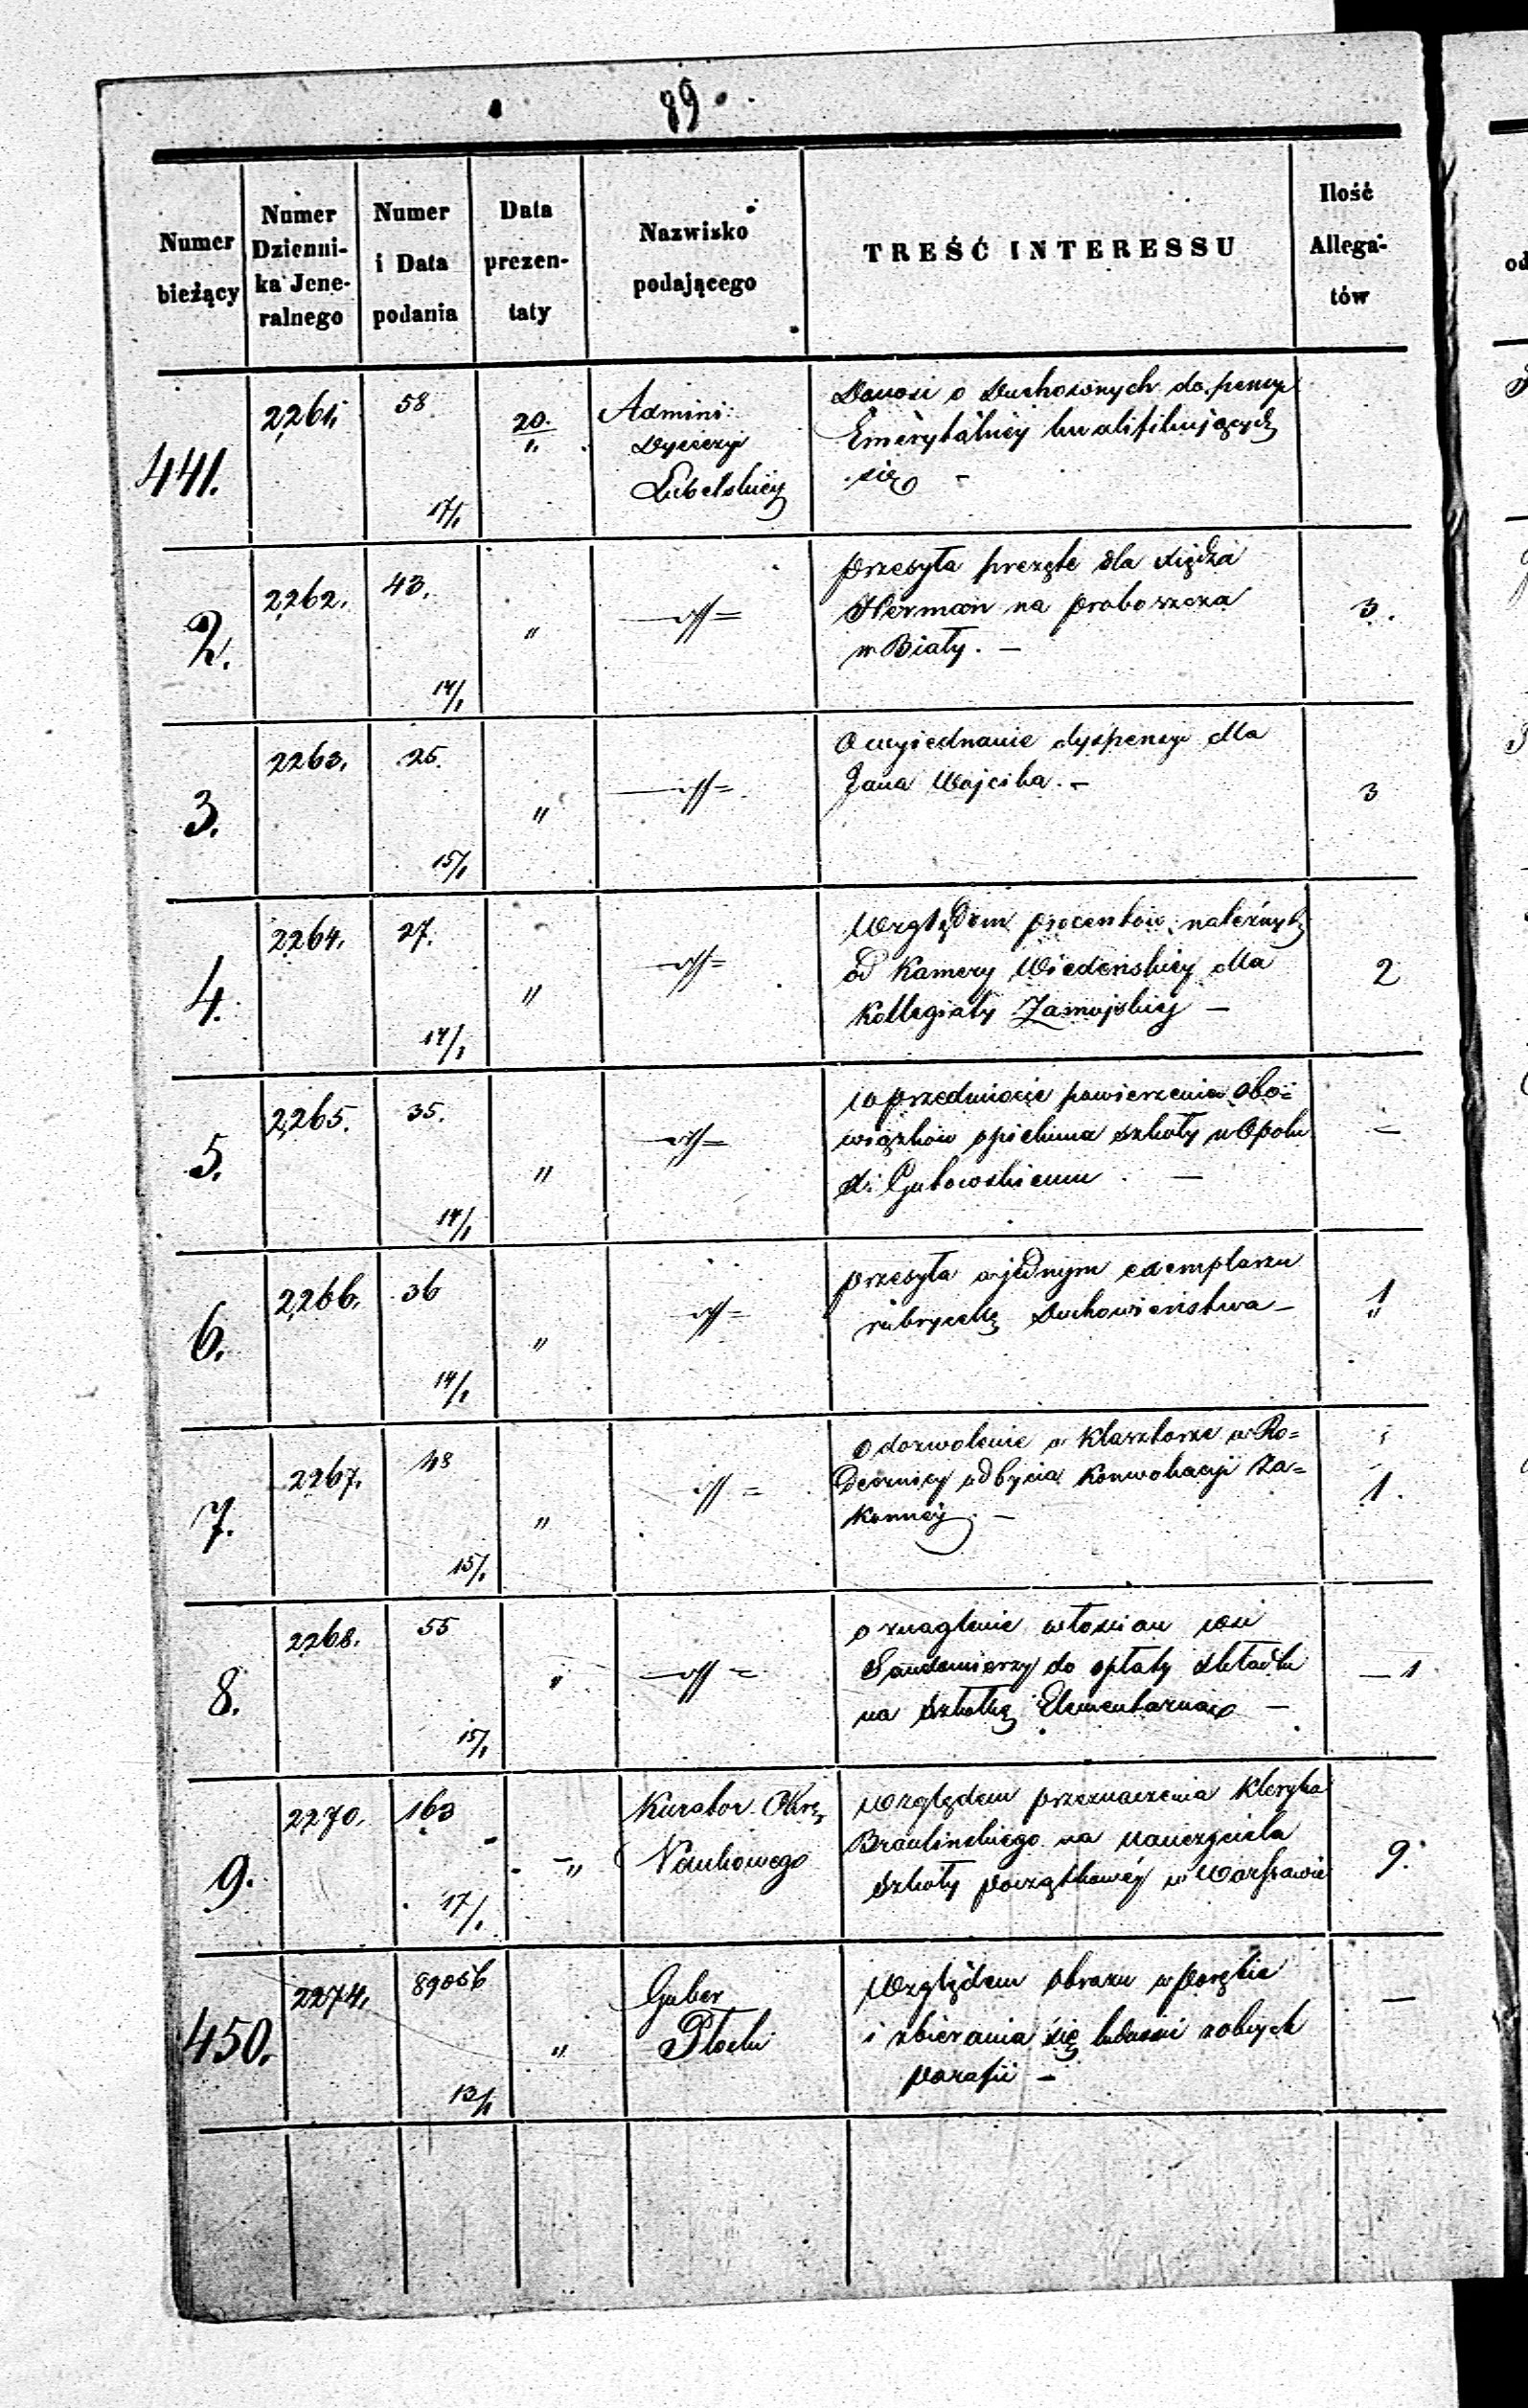 89.
Numer bieżący
Numer Dzienni-ka Jene-ralnego
Numer i Data podania
Data prezen-taty
Nazwisko podającego
TREŚĆ INTERESSU
Ilość Allega-tów
441.
2261.
58
17/1
20./1.
Admini:
Dyecezyi
Lubelskiéj
Donosi o Duchownych do pensyi
Emerytalnéj kwalifikujących
się –
2.
2262.
43.
14/1
"
przesyła prezętę dla Xiędza
Herman na proboszcza
w Biały. –
3.
3.
2263.
25.
15/1
"
O wyiednanie dyspensyi dla
Jana Wójcika. –
3
4.
2264.
27.
14/1
"
Względem procentów należnych
od Kamery Wiedeńskiéj dla
Kollegiaty Zamojskiéj –
2
5.
2265.
35.
14/1
"
w przedmiocie powierzenia obo=
wiązków opiekuna szkoły w Opolu
X: Gutowskiemu –
–
6.
2266.
36
14/1
"
przesyła w jednym exemplarzu
rubrycellę Duchowieństwa –
1
"
7.
2267.
48
15/1
"
o dozwolenie w Klasztorze w Ra=
decznicy odbycia Konwokacyi Za=
konnéj. –
1.
8.
2268.
55
15/1
"
o znaglenie włościan wsi
do opłaty składki
na szkołkę Elementarną –
– 1
9.
2270.
163
17/1
"
Kurator Okrę
Naukowego
względem przeznaczenia Kleryka
na Nauczyciela
szkoły początkowéj w Warszawie
9.
450.
2274.
89056
13/1
"
Guber
Płocki
Względem obrazu w Porębie
i zbierania się ludności z obcych
parafii –
–